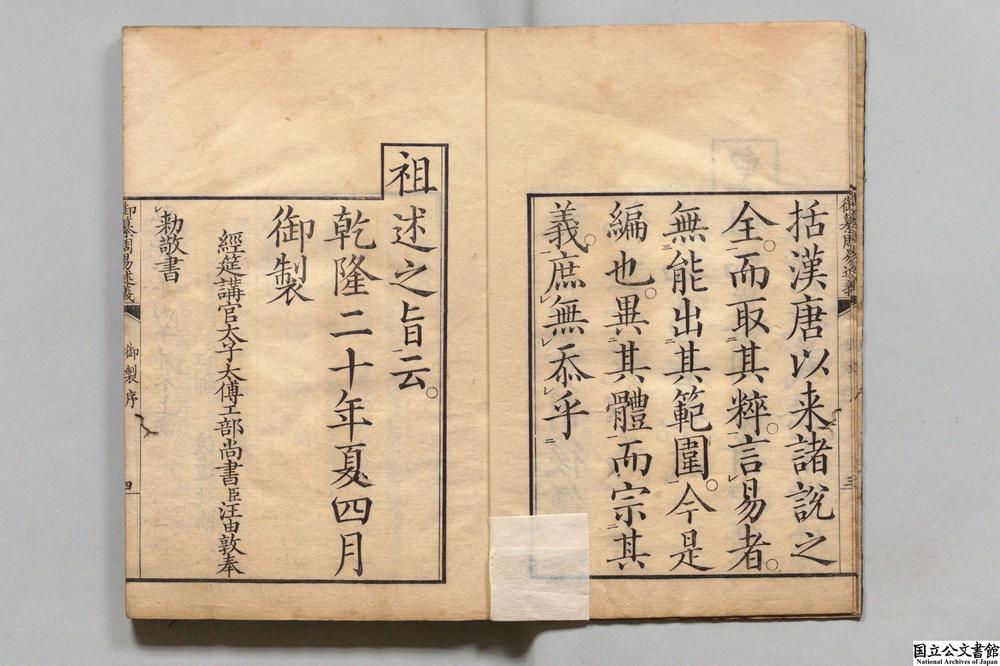 括漢唐以来諸說之
全。而取其粹。言易者。
無能出其範圍。今是
編也。異其體而宗其
義。庶無忝乎
祖述之旨云。
乾隆二十年夏四月
御製
經筵講官太子太傅工部尚書臣汪由敦奉
勅敬書
御纂周易述義
御製序
三
御纂周易述義
御製序
四
国立公文書館
National Archives of Japan